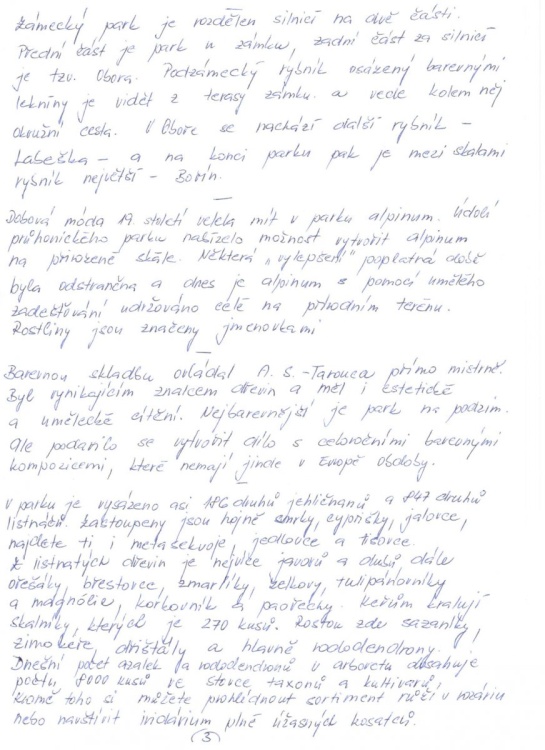 Zámecký park je rozdělen silnicí na dvě části.
Přední část je park u zámku, zadní část za silnicí
je tzv. Obora. Podzámecký rybník osázený barevnými
lekníny je vidět z terasy zámku a vede kolem něj
okružní cesta. V Oboře se nachází další rybník –
Labeška – a na konci parku pak je mezi skalami
rybník největší – Bořín.
Dobová móda 19. století velela mít v parku alpinum. Údolí
průhonického parku nabízelo možnost vytvořit alpinum
na přirozené skále. Některá "vylepšení" poplatná době
byla odstraněna a dnes je alpinum s pomocí umělého
zadešťování udržováno celé na přírodním terénu.
Rostliny jsou značeny jmenovkami
Barevnou skladbu ovládal A. S. -Tarouca přímo mistrně.
Byl vynikajícím znalcem dřevin a měl i estetické
a umělecké cítění. Nejbarevnější je park na podzim.
Ale podařilo se vytvořit dílo s celoročními barevnými
kompozicemi, které nemají jinde v Evropě obdoby.
V parku je vysázeno asi 186 druhů jehličnanů a 847 druhů
listnáčů. Zastoupeny jsou hojně smrky, cypřišky, jalovce,
najdete tu i metasekvoje, jedlovce a tisovce.
Z listnatých dřevin je nejvíce javorů a dubů dále
ořešáky, břestovce, zmarlíky, zelkovy, tulipánovníky
a magnólie, korkovník a paořechy. Keřům kralují
skalníky, kterých je 270 kusů. Rostou zde sazaníky,
zimokeře, dřišťály a hlavně rododendrony!
Dnešní počet azalek a rododendronů v arboretu dosahuje
počtu 8000 kusů ve stovce taxonů a kultivarů,
kromě toho si můžete prohlédnout sortiment růží v rozáriu
nebo navštívit iridárium plné úžasných kosatců.
(3)